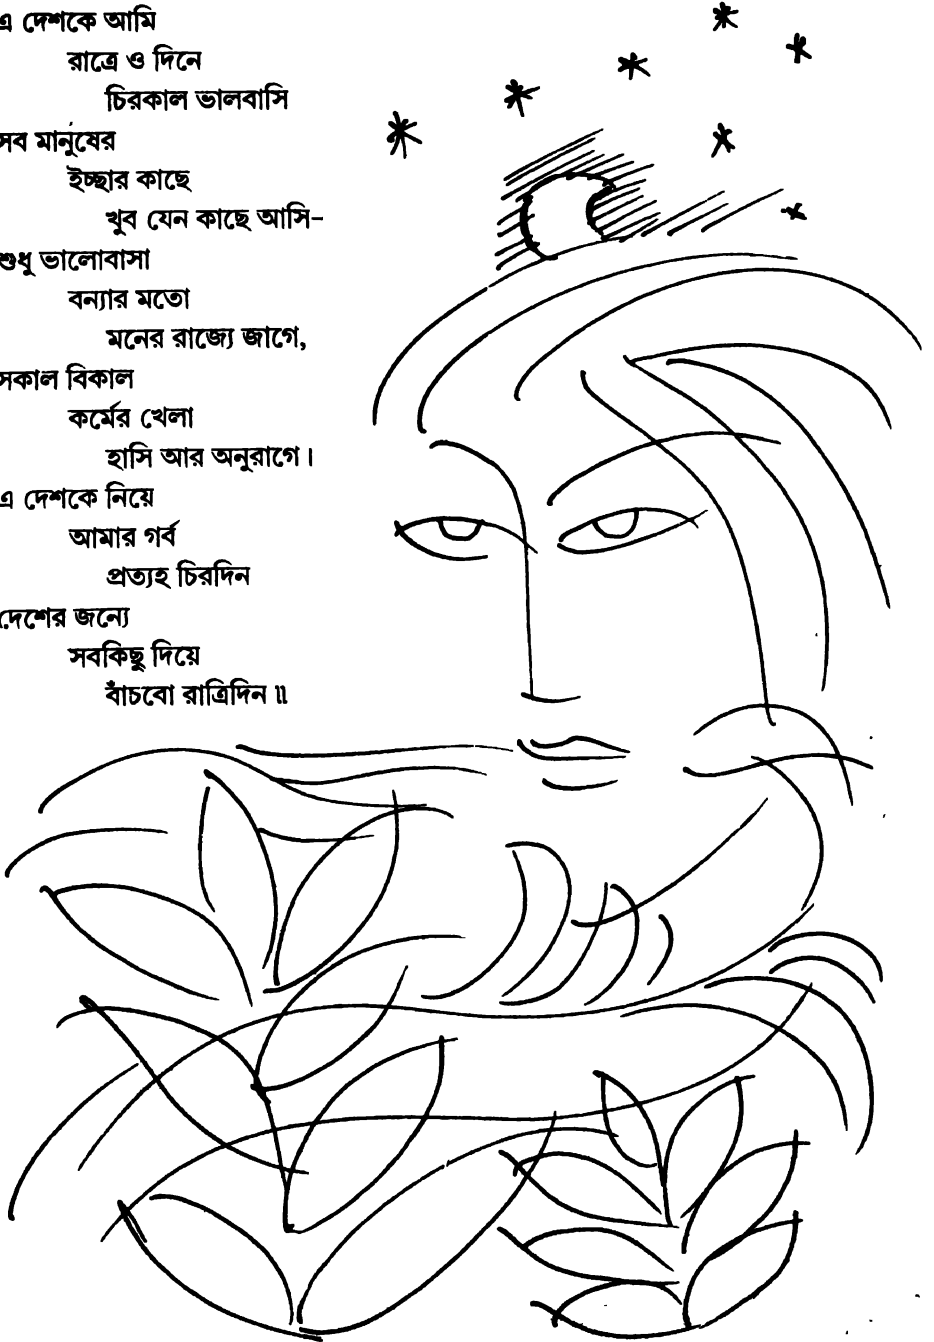 এ দেশকে আমি
রাত্রে ও দিনে
চিরকাল ভালবাসি
সব মানুষের
ইচ্ছার কাছে
খুব যেন কাছে আসি-
শুধু ভালোবাসা
বন্যার মতো
মনের রাজ্যে জাগে,
সকাল বিকাল
কর্মের খেলা
হাসি আর অনুরাগে।
এ দেশকে নিয়ে
আমার গর্ব
প্রত্যহ চিরদিন
দেশের জন্যে
সবকিছু দিয়ে
বাঁচবো রাত্রিদিন ॥